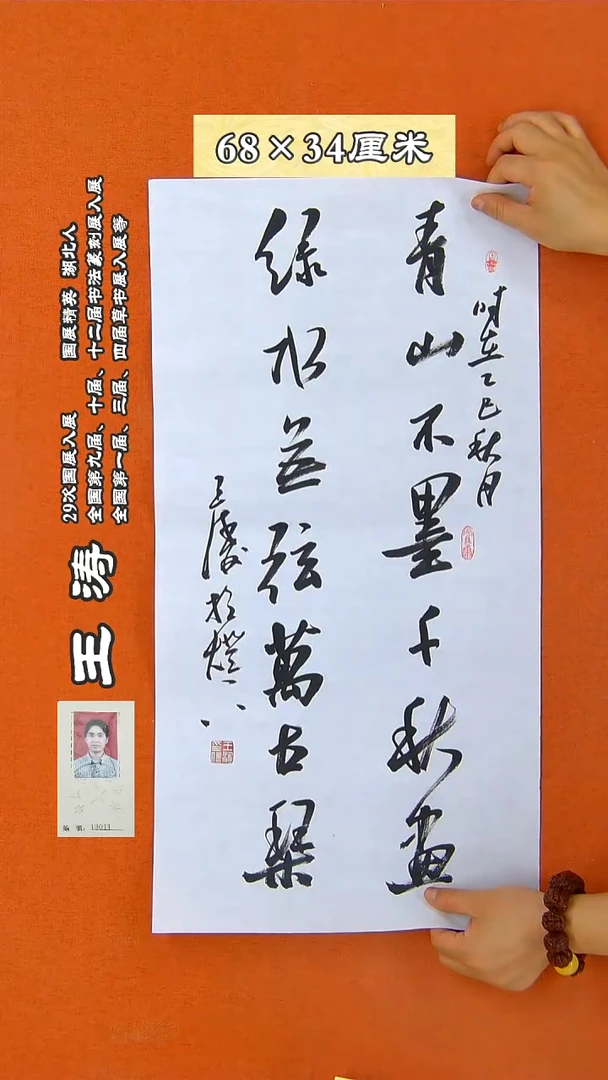 68×34厘米
青山不墨千秋画
绿水無弦萬古琴
时在乙巳秋月
王涛
29次国展入展 国展精英 湖北人
全国第九届、十届、十二届书法篆刻展入展
全国第一届、三届、四届草书展入展等
編 號：13011